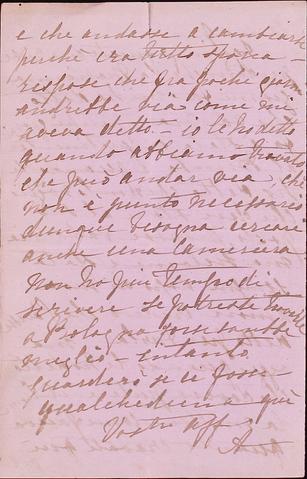 e che andasse a cambiarsi
perchè era tutto sporca
rispose che fra pochi giorni
andrebbe via come mi
aveva detto – io le ho detto
quando abbiamo
che può andar via, che
non è punto necessario
dunque bisogna cercare
anche una cameriera –
non ho più tempo di
scrivere se poteste
a Bologna sarebbe
meglio – intanto
guarderò se ci fosse
qualcheduna quì
Vostra aff
A